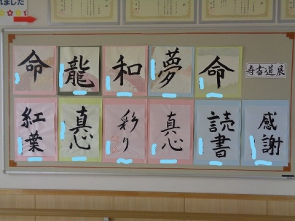 れました
命
龍
和
夢
命
寿書道展
紅葉
真心
彩り
真心
読書
感謝